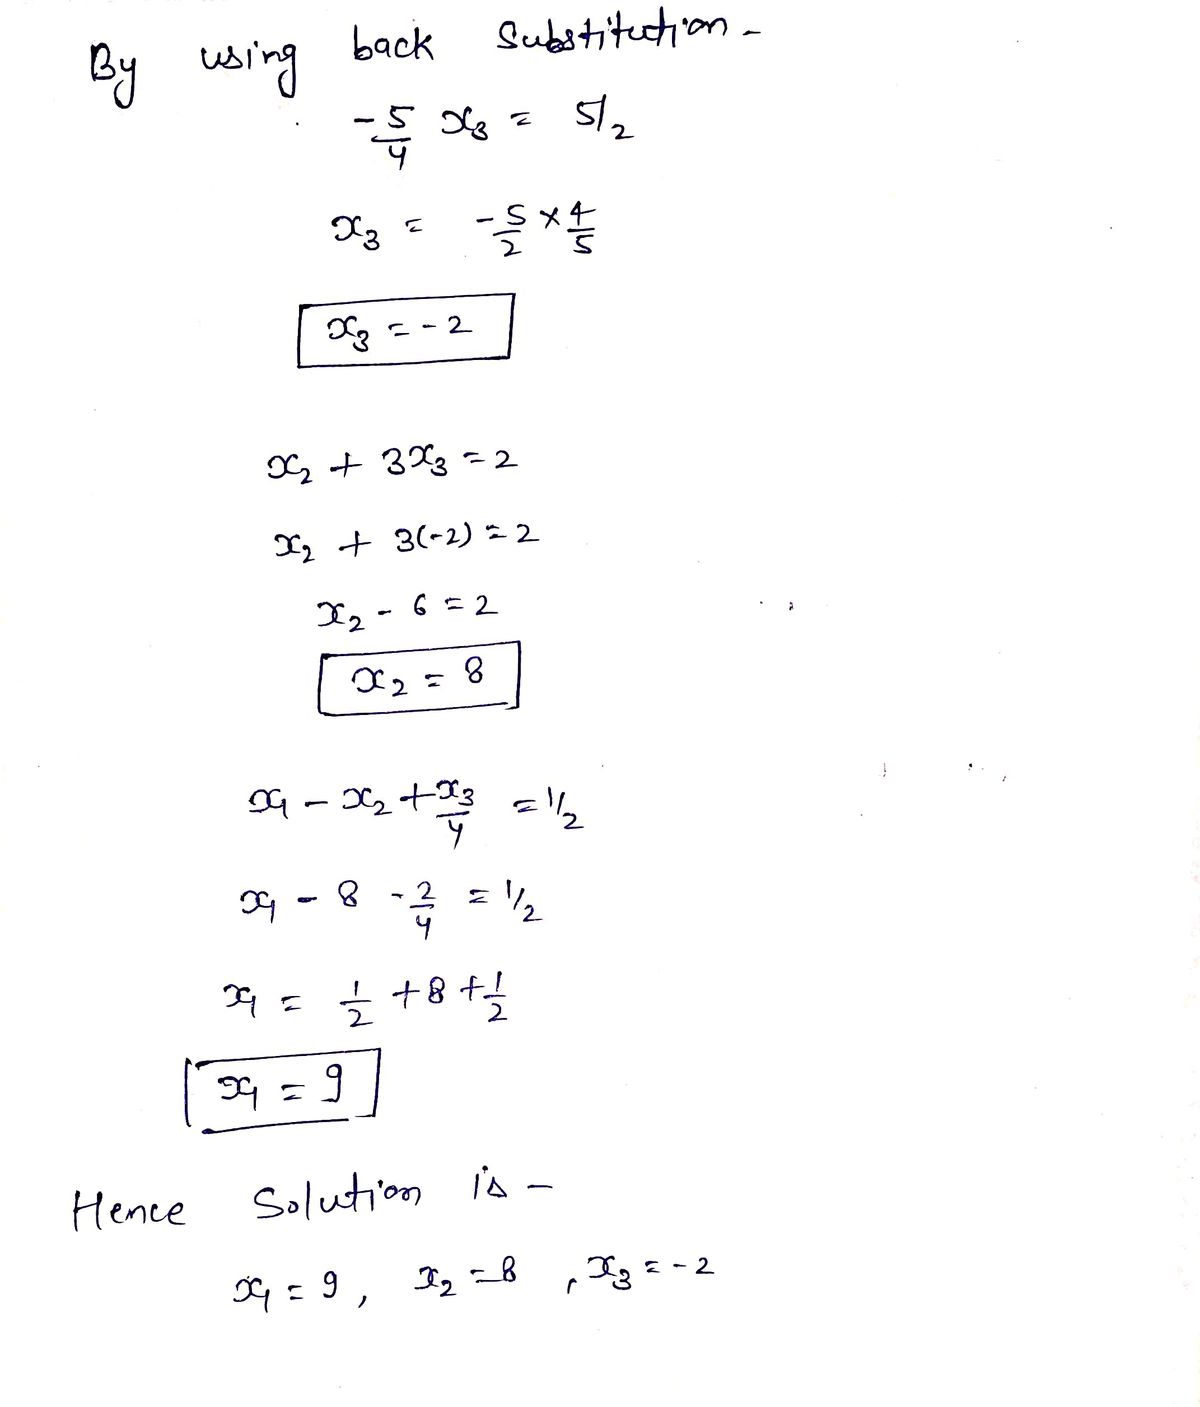 By using back Substitution -
-5/4 x₃ = 5/2
x₃ = -5/2 × 4/5
x₃ = -2
x₂ + 3x₃ = 2
x₂ + 3(-2) = 2
x₂ - 6 = 2
x₂ = 8
x₁ - x₂ + x₃/4 = 1/2
x₁ - 8 - 2/4 = 1/2
x₁ = 1/2 + 8 + 1/2
x₁ = 9
Hence Solution is -
x₁ = 9, x₂ = 8, x₃ = -2